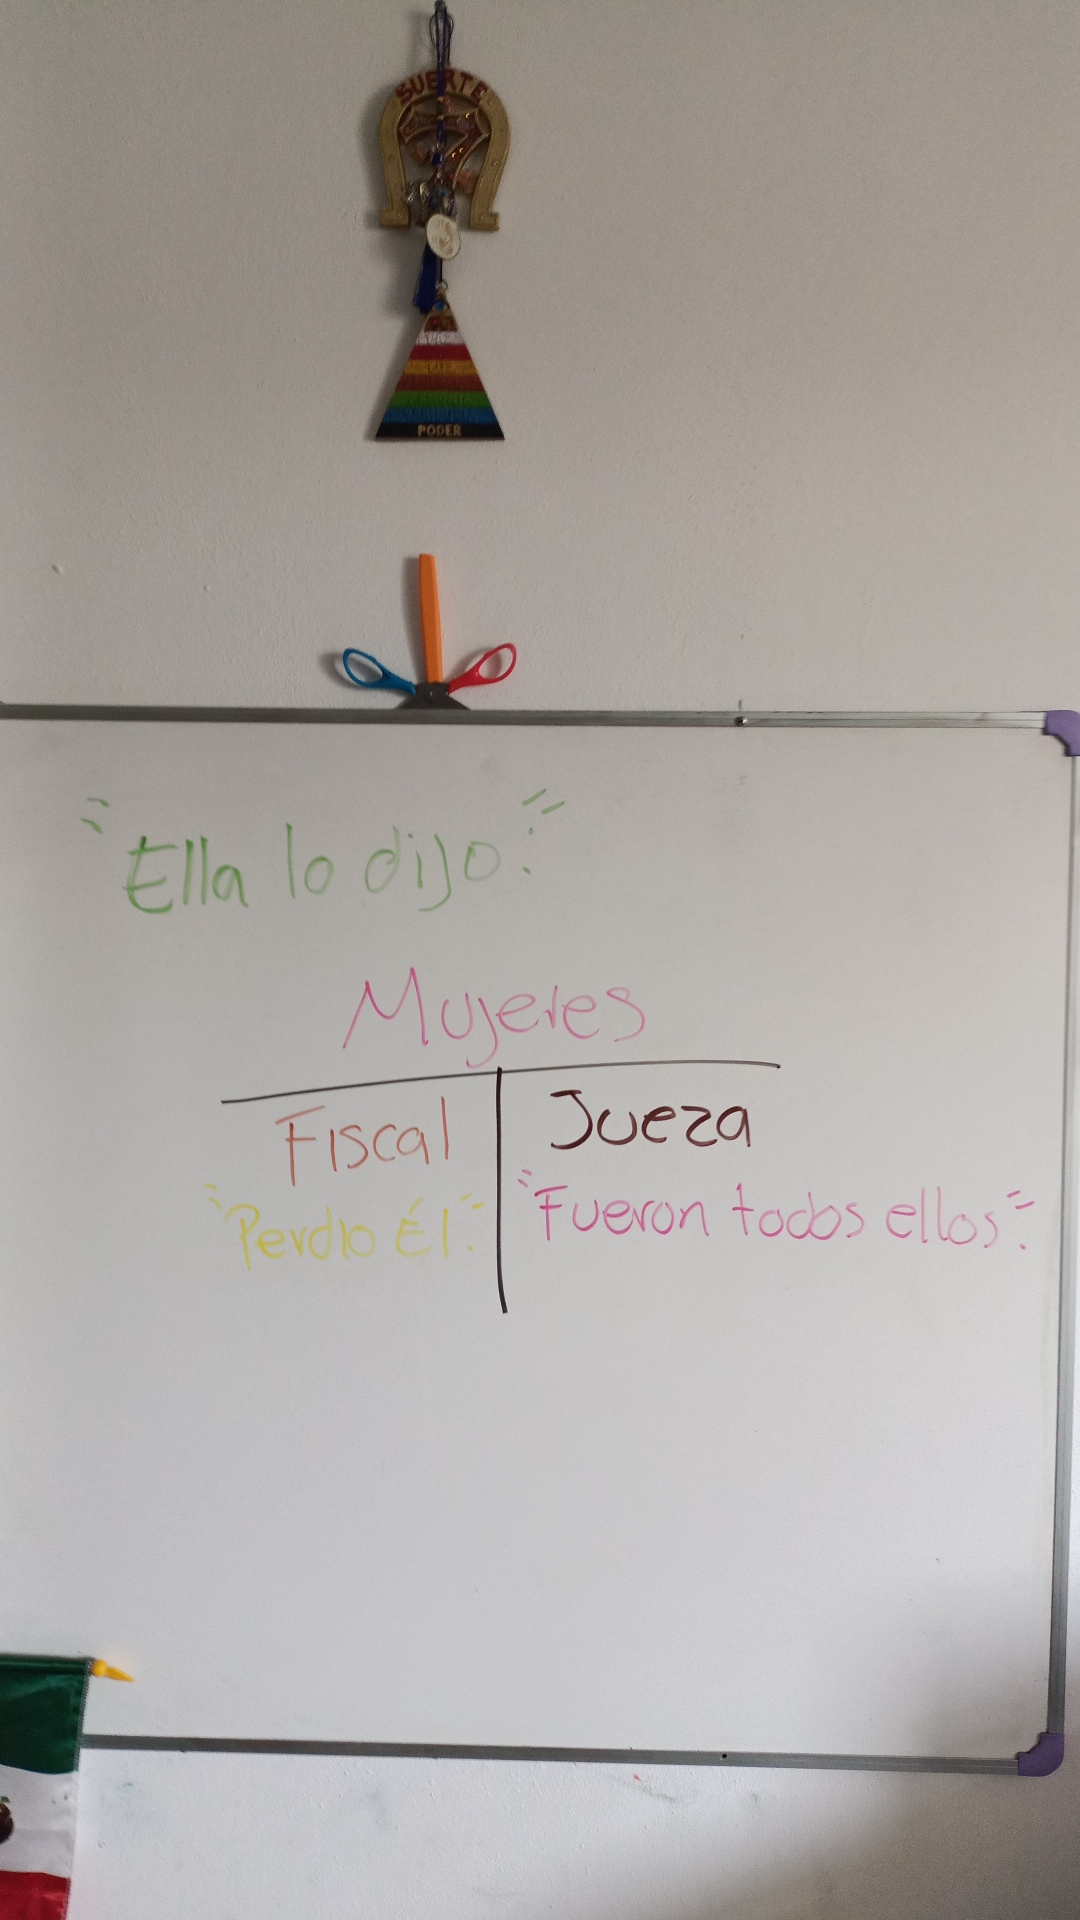 SUERTE
LUZ
PODER
"Ella lo dijo."
Mujeres
Fiscal
Jueza
"Perdio Él."
"Fueron todos ellos".